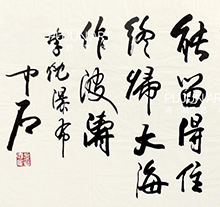 能留得住
终归大海
作波涛
李忱瀑布
中石